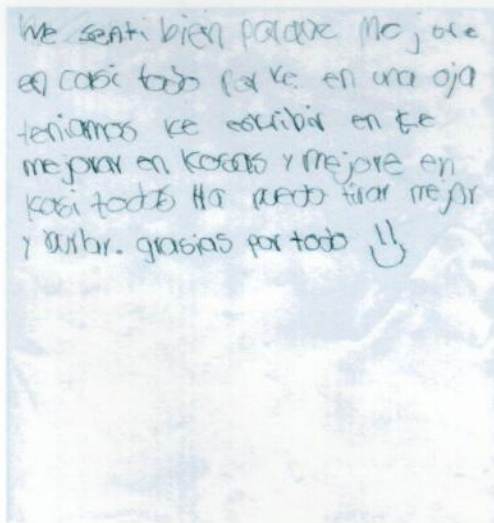 Me senti bien porque mejore
en casi todo Porke en una oja
teniamos ke escribir en ke
mejorar en kosas y mejore en
kasi todas Ya puedo tirar mejor
y burlar. grasias por todo